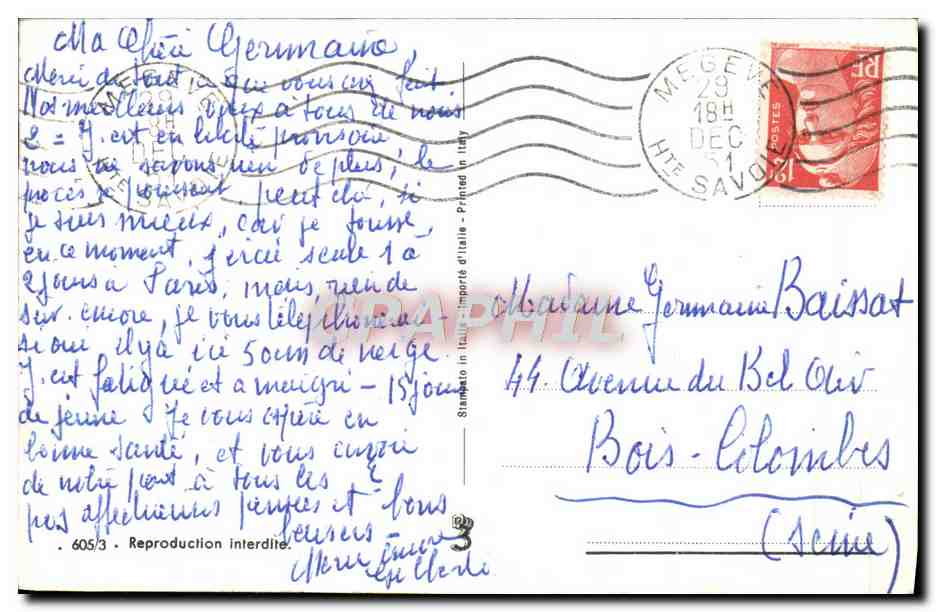 Ma Chère Germaine,
Merci de tout ce que vous avez fait.
Nos meilleurs vœux à tous de nous
2 = J. est en liberté provisoire,
nous ne savons rien de plus, le
procès se poursuit. peut être, si
je suis mieux, car je tousse
en ce moment, j'irai seule 1 à
2 jours à Paris, mais, rien de
sûr encore, je vous téléphonerai
si oui il y a ici 50 cm de neige
J. est fatigué et a maigri - 15 jours
de jeune Je vous espère en
bonne santé, et vous envoie
de notre part à tous les
2
pas affectueuses pensées et bons
baisers -
Merci encore
MEGEVE
29
18H
DEC
51
HTE SAVOIE
MEGEVE
29
18H
DEC
51
HTE SAVOIE
RF
POSTES
12F
CPAPHIL
Stampato in Italia - Importé d'Italie - Printed in Italy
Madame Germaine Baissat
44 Avenue du Bel Air
Bois-Colombes
(Seine)
. 605/3 . Reproduction interdite.
3